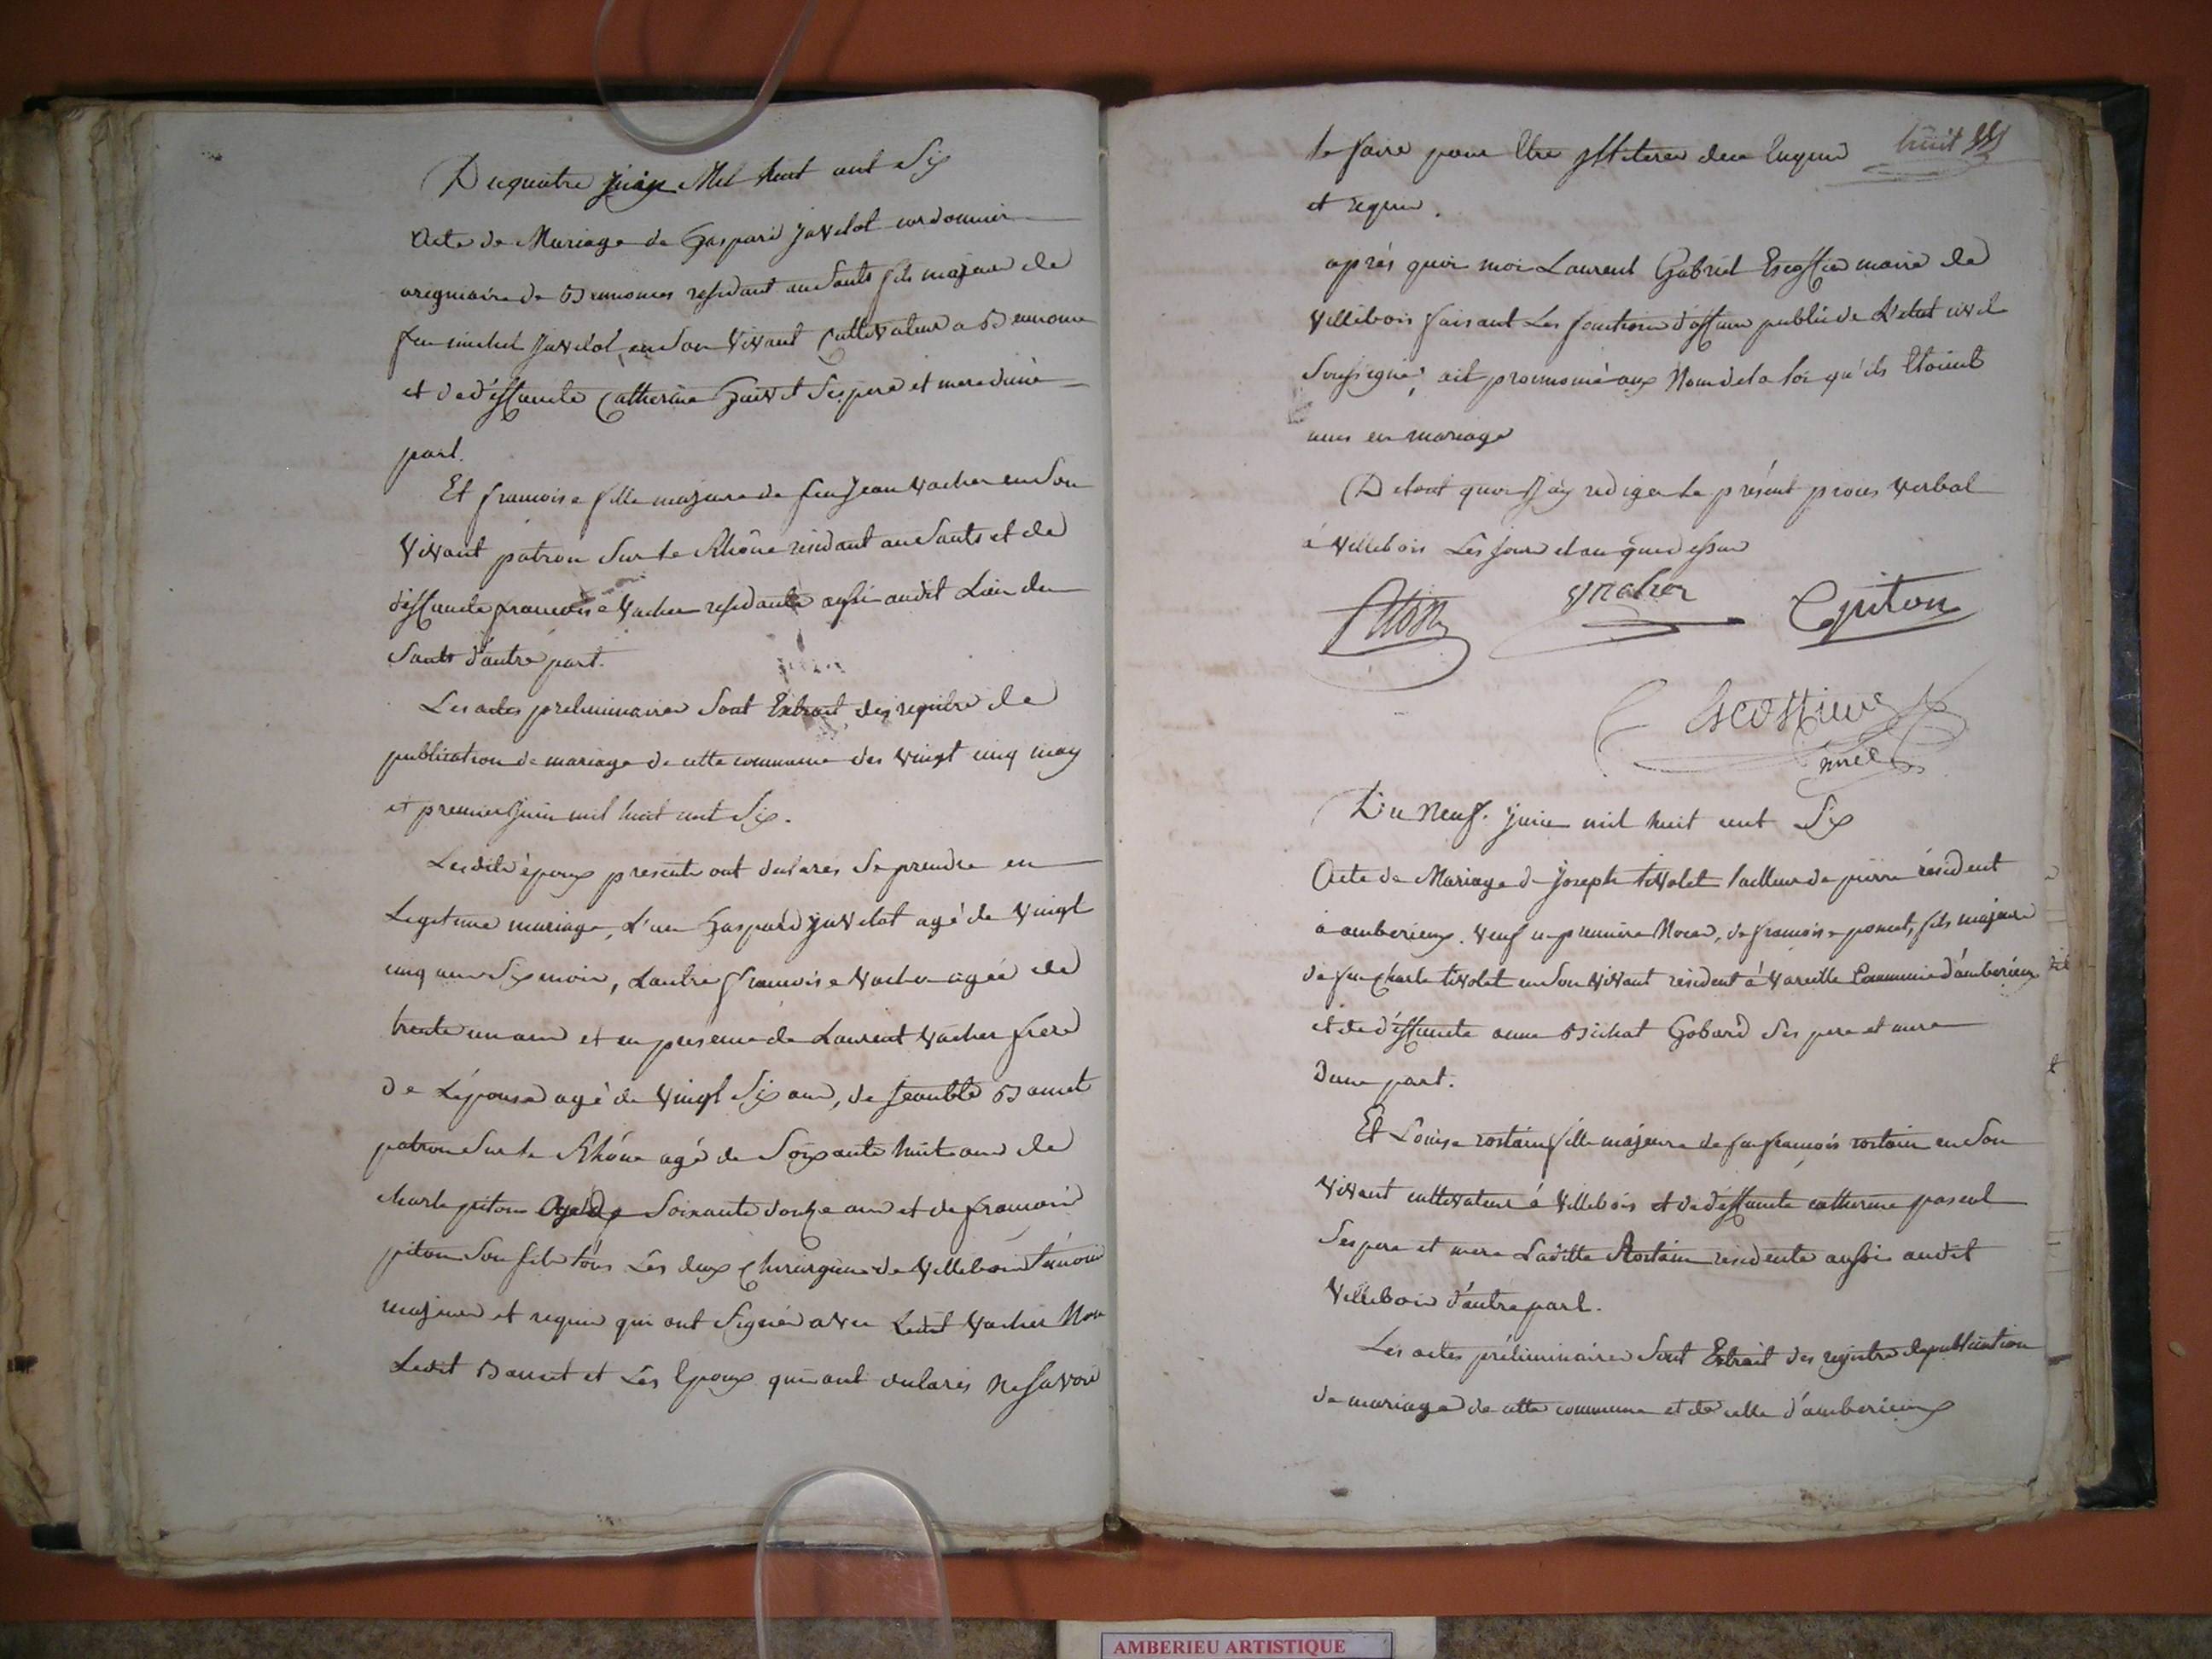 Du quatre juin Mil huit cent Six
Acte de Mariage de Gaspard Juvelot cordonnier
origniaire de resident au Sault fils majeur de
feu michel Juvelot en Son Vivant Cultivateur a
et de déffuncte Catherine Ses pere et mere d'une
part.
Et francoise fille majeure de feu Jean Vacher en Son
Vivant patron Sur le Rhône résidant au Sault et de
déffuncte francoise Vacher residante aussi audit Lieu du
Sault d'autre part.
Les actes preliminaires Sont Extrait des registre de
publication de mariage de cette commune des vingt cinq may
et premier Juin mil huit cent Six.
Lesdits époux présents ont déclarés Se prendre en
Legitime mariage, L'un Gaspard Juvelot agé de Vingt
cinq ans Six mois, Lautre francoise Vacher agée de
trente un ans et en presence de Laurent Vacher frere
de Lépouse agé de Vingt Six ans, de
patron Sur le Rhône agé de Soixante huit ans de
charle piton Agé de Soixante douze ans et de francois
piton Son fils tous Les deux chirurgiens de Villebois témoins
majeurs et requis qui ont Signés avec Ledit Vacher Non
Ledit et Les Epoux qui ont déclarés ne Savoir
huit
le faire pour Etre illiterés de ce Enquis
et requis.
aprés quoi moi Laurent Gabriel Escoffier maire de
Villebois faisant Les fonctions d'officier public de L'etat civil
Soussigné; ait prononcé aux Nom de la loi qu'ils Etoient
unis en mariage
De tout quoi J'ay rediger le présent procés verbal
à Villebois Les jour et an que dessus
Piton
Vacher
C piton
Escoffier
mre
Du Neuf. Juin mil huit cent Six
Acte de Mariage de Joseph tivolet tailleur de pierre résident
à amberieux. Veuf en premiere Noces, de francoise poncet, fils majeur
de feu Charle tivolet en Son vivant résident à Vareille Commune d'amberieux
et de déffuncte anne Bichat Gobard Ses pere et mere
Dune part.
Et Louise rostain fille majeure de feu françois rostain en Son
Vivant cultivateur à Villebois et de déffuncte catherine pascal
Ses pere et mere Laditte Rostain residente aussi audit
Villebois d'autre part.
Les actes préliminaires Sont Extrait des registre de publication
de mariage de cette commune et de celle d'amberieux
AMBERIEU ARTISTIQUE